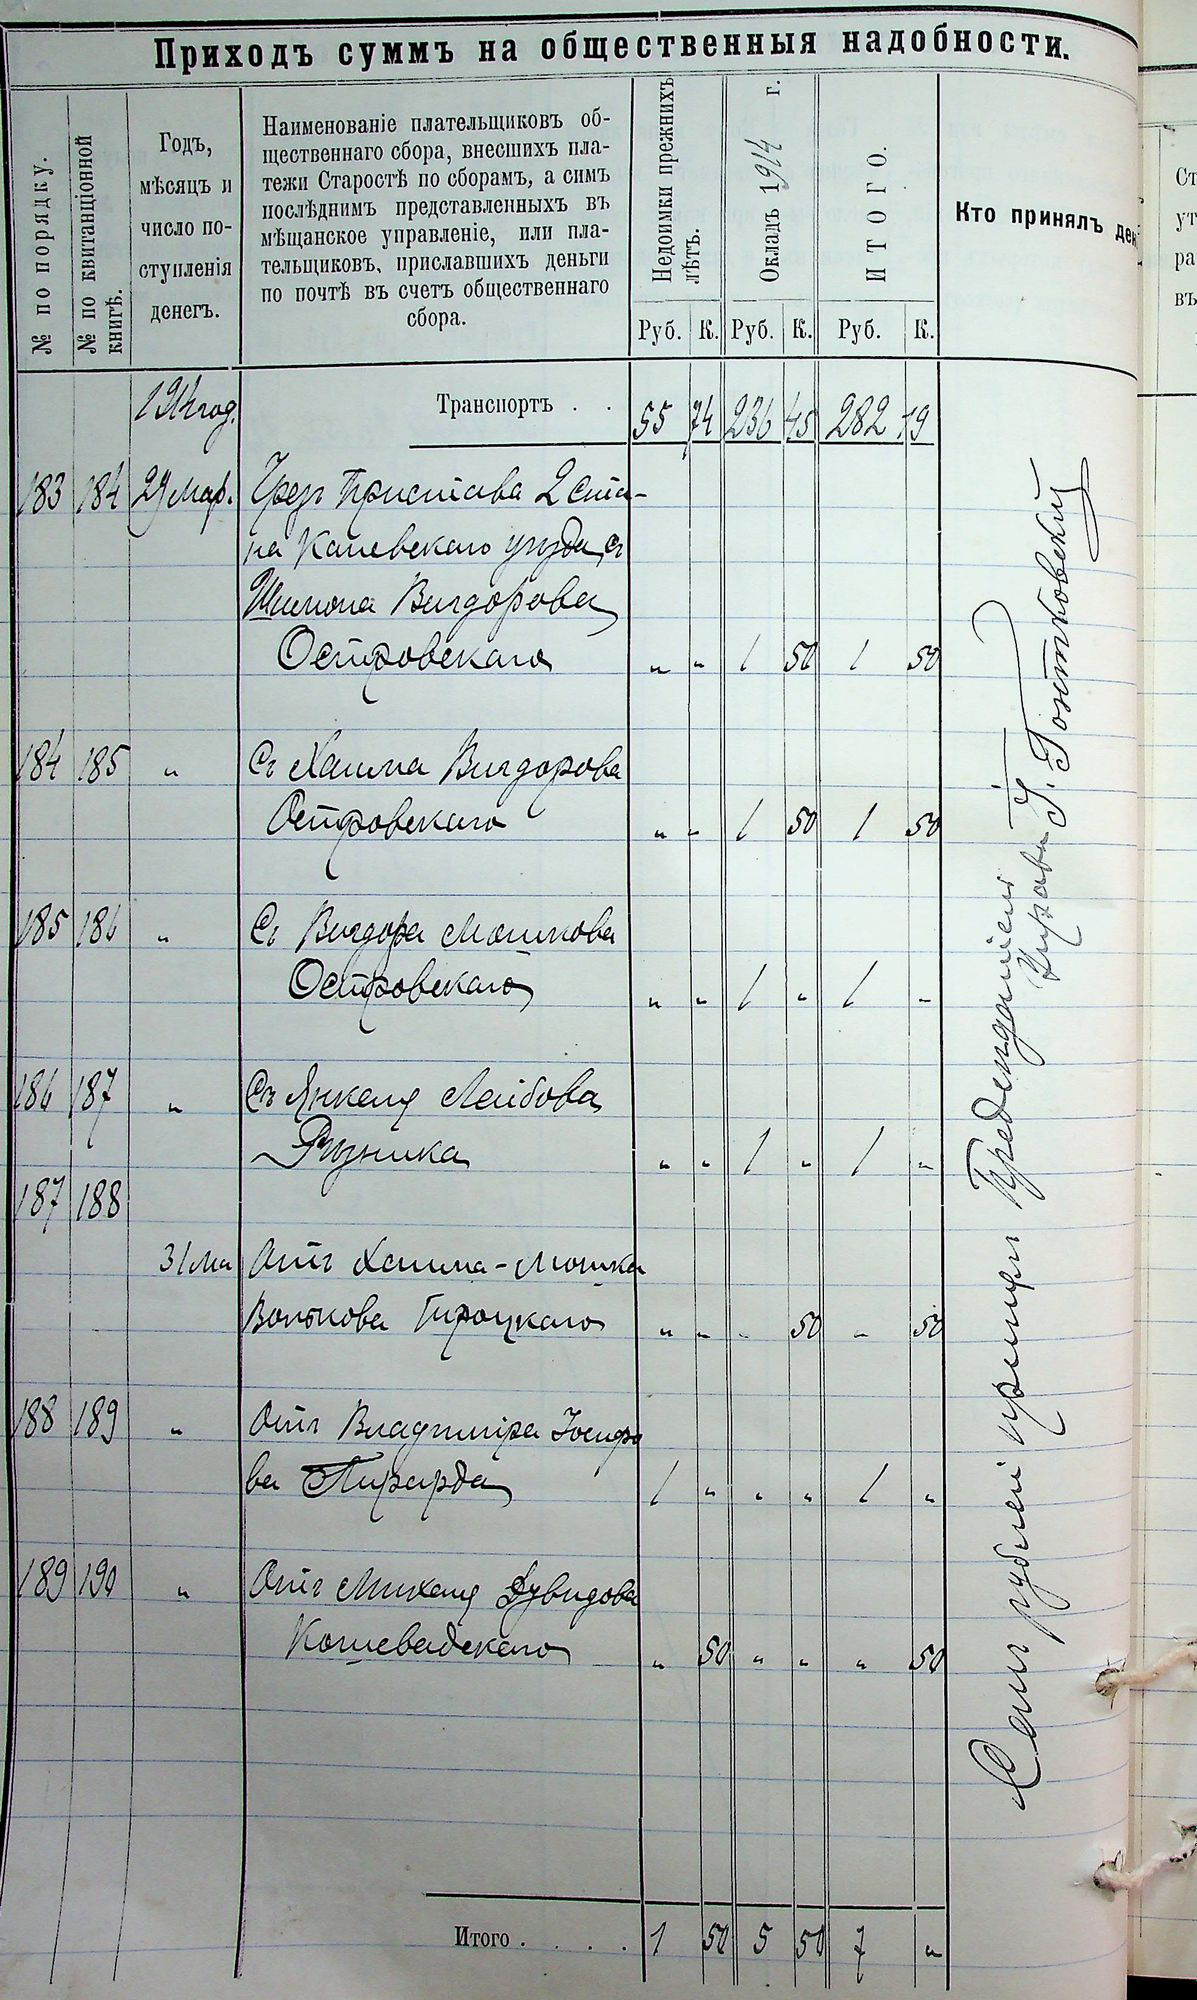 Приходъ суммъ на общественныя надобности.
№ по порядку.
№ по квитанціонной
книгѣ.
Годъ,
мѣсяцъ и
число по-
ступленія
денегъ.
Наименованіе плательщиковъ об-
щественнаго сбора, внесшихъ пла-
тежи Старостѣ по сборамъ, а симъ
послѣднимъ представленныхъ въ
мѣщанское управленіе, или пла-
тельщиковъ, приславшихъ деньги
по почтѣ въ счетъ общественнаго
сбора.
Недоимки прежнихъ
лѣтъ.
Окладъ 1914 г.
ИТОГО.
Кто принялъ ден
Руб. К. Руб. К. Руб. К.
1914 год. Транспортъ . . 55 74 236 45 282 19
183 184 29 Мар. Чрез Пристава 2 Ста-
на Каневскаго уезда, съ
Шимона Вигдорова
Островскаго " " 1 50 1 50
184 185 " Съ Хаима Вигдорова
Островскаго " " 1 50 1 50
185 186 " Съ Вигдора Мошкова
Островскаго " " 1 " 1 "
186 187 " Съ Янкеля Лейбова
Резника " " 1 " 1 "
187 188
31 Ма Отъ Хаима-Мошка
Волькова Троцкаго " " " 50 " 50
188 189 " Отъ Владиміра Іосифо
ва 1 " " " 1 "
189 190 " Отъ Михеля Дувидова
Кошевадскаго " 50 " " " 50
Итого . . . . 1 50 5 50 7 "
Семь рублей принялъ Предсѣдатель
Управы Гонтковскій
Ст
ут
ра
въ